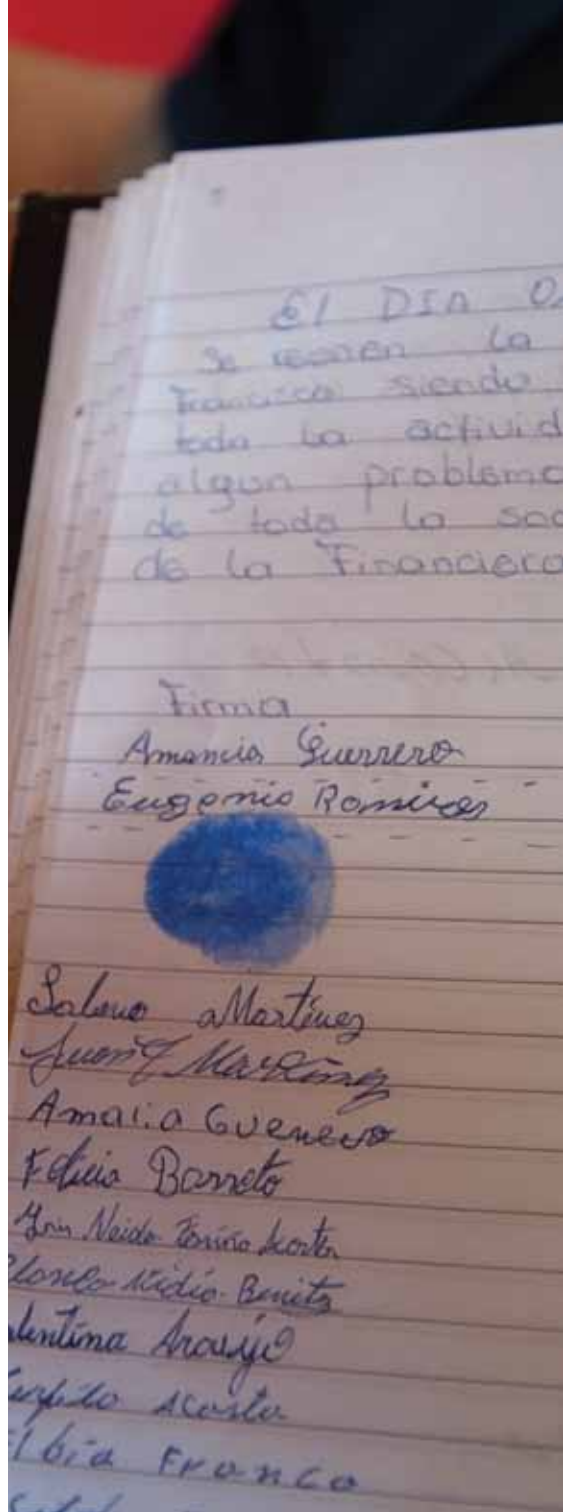 El DIA
Se reunen la
Francisca siendo
toda la activid
algun problema
de toda la soc
de la Financiera
Firma
Amancia Guerrero
Eugenio Romires
aMartinez
Juan Martinez
Amalia Guenero
Felicia Barreto
Neida Acosta
Nidia Benitz
lentina Araujo
Acosta
lbia Franco